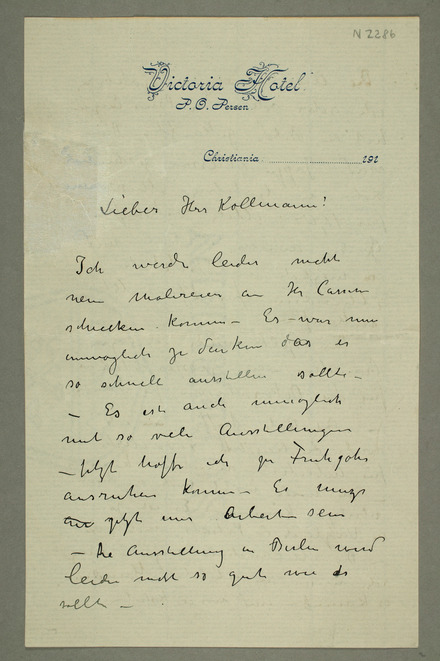 N 2286
Victoria Hotel
P. O. Person
Christiania 191
Lieber Herr Kollmann!
Ich werde leider nicht
neue Malereien an Hr Cassirer
schicken können – Es war nur
unmöglich zu denken das es
so schnell ausstellen sollte –
– Es ist auch unmöglich
mit so viele Ausstellungen
– Jetzt hoffe ich zu Frühjahr
ausruhen können – Es muss
jetzt nur Arbeiten sein
– Die Ausstellung in Berlin wird
leider nicht so gut wie es
sollte –